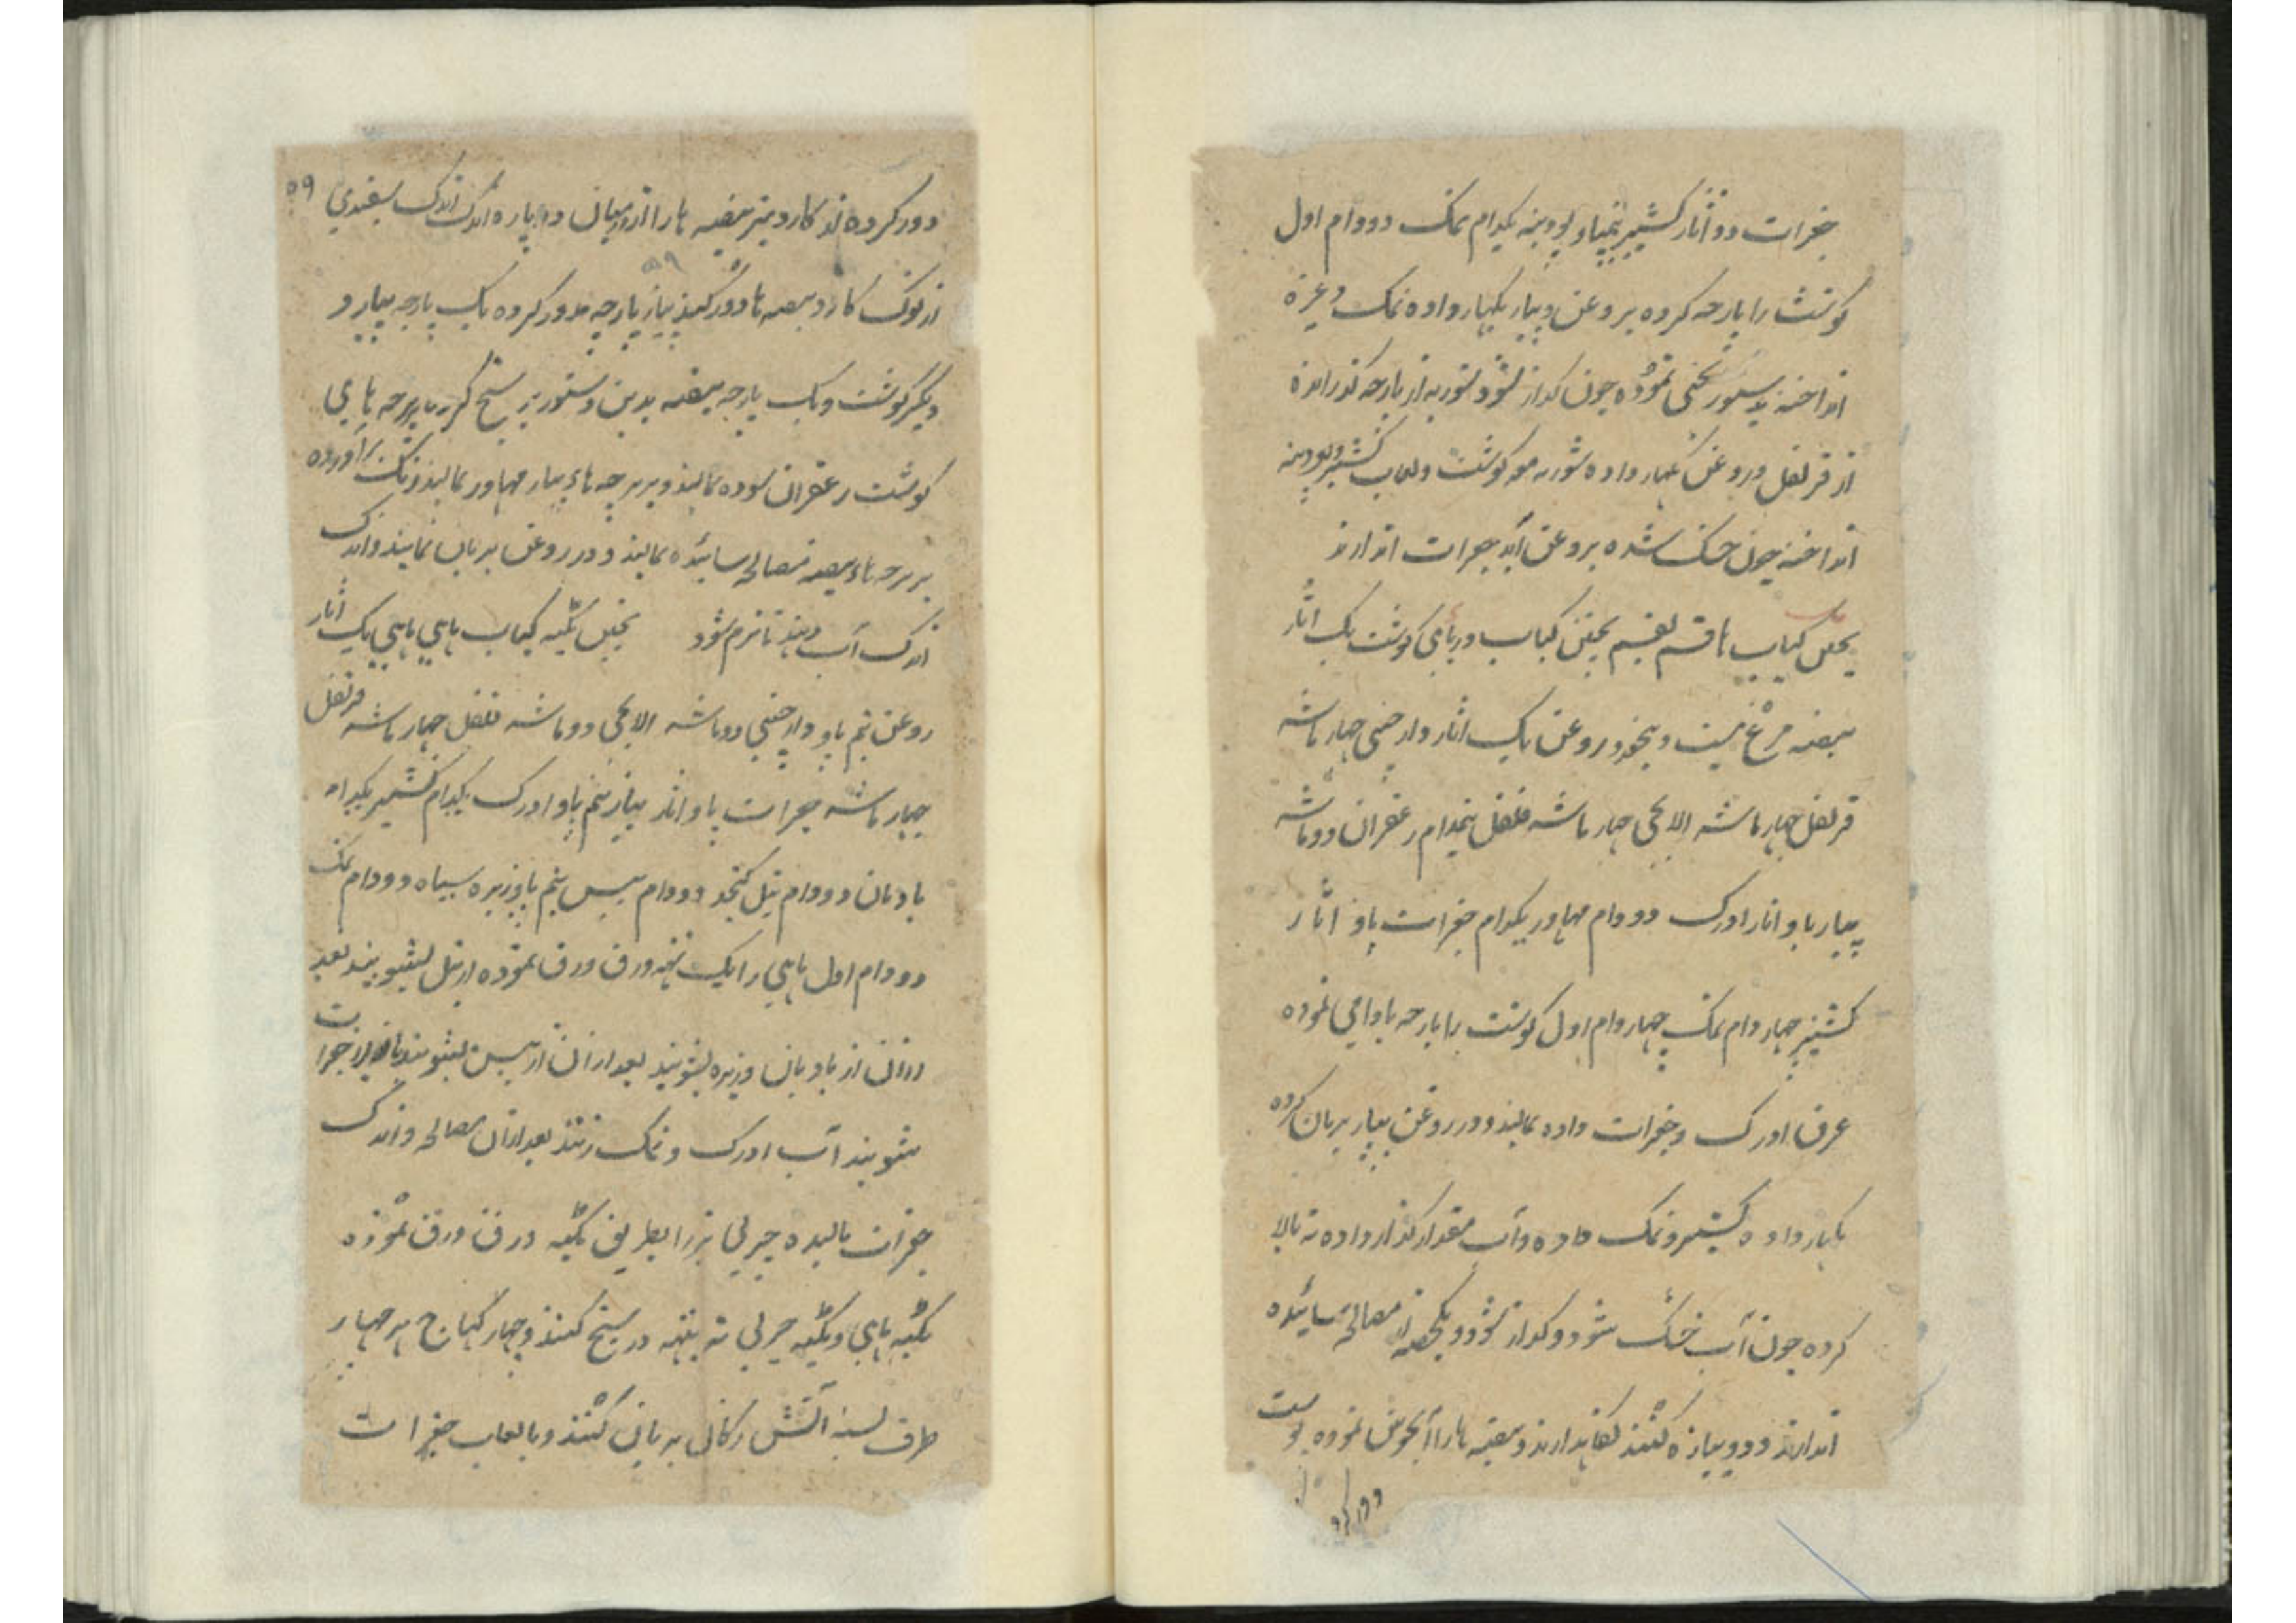 جغرات دو آثار کشنیز نیمپاو پودینه یکدام نمک دو دام اول
گوشت را پارچه کرده بروغن و پیاز بگهار داده نمک وغیره
انداخته بدستور یخنی نموده چون گداز شود شوربه از پارچه گذرانده
از قرنفل و روغن بگهار داده شوربه مه گوشت ولعاب کشنیز و پودینه
انداخته چون خشک شده بروغن آید جغرات اندازند
پختن کباب ها قسم بقسم پختن کباب دریائی گوشت یک آثار
بیضه مرغ بیست و پنجعدد روغن یک آثار دارچینی چهار ماشه
قرنفل چهار ماشه الایچی چهار ماشه فلفل نیمدام زعفران دو ماشه
پیاز پاو آثار ادرک دو دام مهاور یکدام جغرات پاو آثار
کشنیز چهار دام نمک چهار دام اول گوشت را پارچه بادامی نموده
عرق ادرک و جغرات داده بمالند و در روغن پیاز بریان کرده
بگهار داده کشنیز و نمک داده و آب مقدار گداز داده ته بالا
کرده چون آب خشک شود و گداز شود و یکحصه از مصالح سائیده
اندازند و دو پیازه کنند نگاهدارند و بیضه ها را آبجوش نموده پوست
دور کرده
۵۹
دور کرده از کارد نیز بیضه ها را از درمیان دو پاره اندک اندک سفیدی
۵۹
از نوک کارد بیضه ها دور کنند پیاز پارچه مدور کرده یک پارچه پیاز و
دیگر گوشت و یک پارچه بیضه بدین دستور بر سیخ کرده بر پرچه های
گوشت زعفران سوده بمالند و بر پرچه هاء پیاز مهاور بمالند رنگ برآورده
بر پرچه هاء بیضه مصالح سائیده بمالند و در روغن بریان نمایند و اندک
اندک آب دهند تا نرم شود پختن تکیه کباب ماهی ماهی یک آثار
روغن نیم پاو دارچینی دو ماشه الایچی دو ماشه فلفل چهار ماشه قرنفل
چهار ماشه جغرات پاو آثار پیاز نیم پاو ادرک یکدام کشنیز یکدام
بادیان دو دام تیل کنجد دو دام بیسن نیم پاو زیره سیاه دو دام نمک
دو دام اول ماهی را یک تهه ورق ورق نموده از تیل بشویند بعد
ازان از بادیان و زیره بشویند بعد ازان از بیسن بشویند باز از جغرات
بشویند آب ادرک و نمک زنند بعد ازان مصالح و اندک
جغرات مالیده چربی بز را بطریق تکیه ورق ورق نموده
تکیه ماهی و تکیه چربی ته بتهه در سیخ کنند و چهار کهاج بر چهار
طرف بسته آتش زکال بریان کنند و بالعاب جغرات